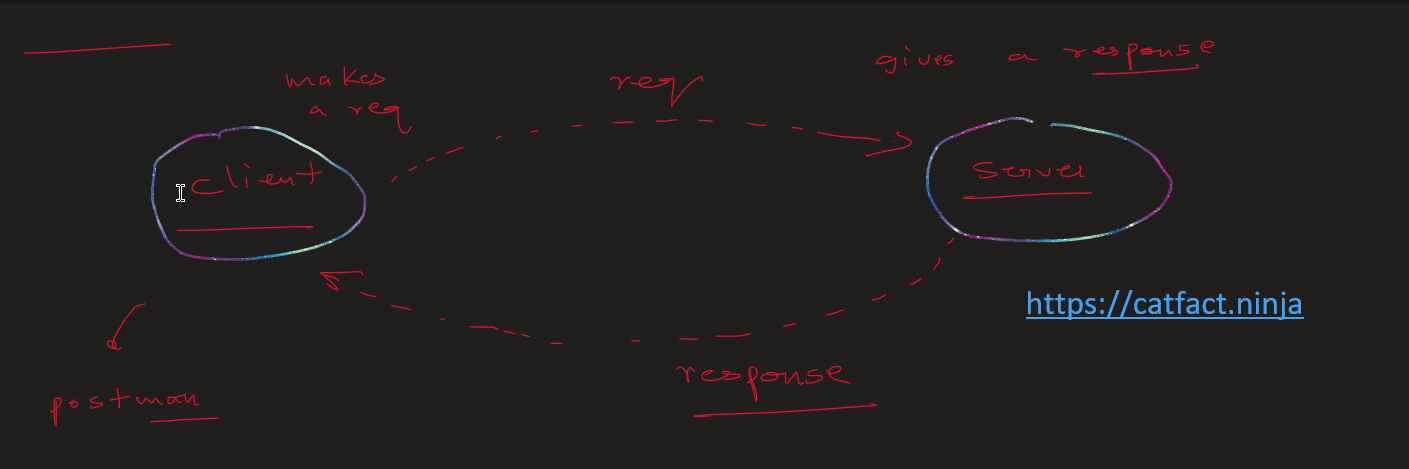 makes
a req
req
gives a response
Client
Server
https://catfact.ninja
response
postman